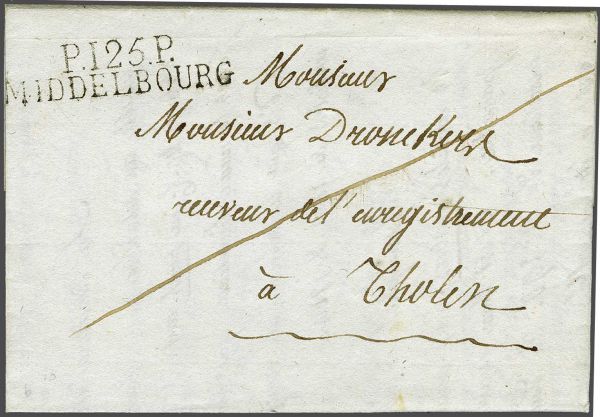 P.125.P.
MIDDELBOURG
Monsieur
Monsieur Dronckers
receveur de l'enregistrement
à Tholen